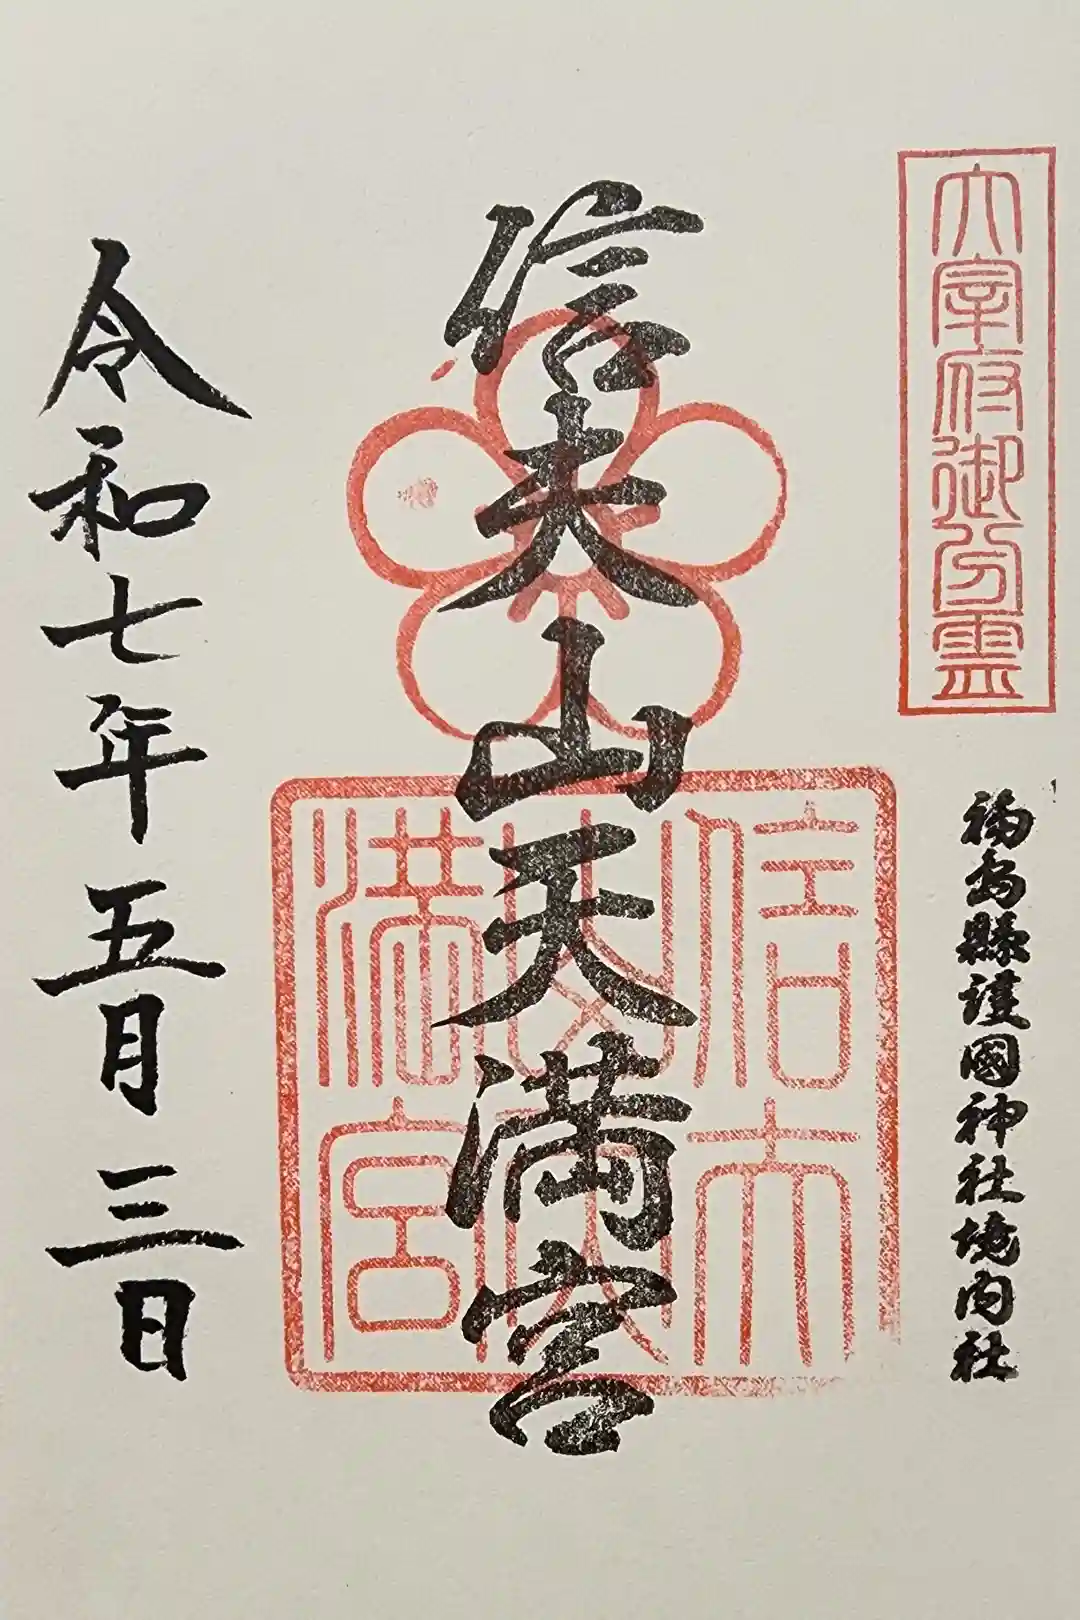 大宰府御分霊
福島縣護國神社境内社
信夫山天満宮
信夫
山天
満宮
令和七年五月三日